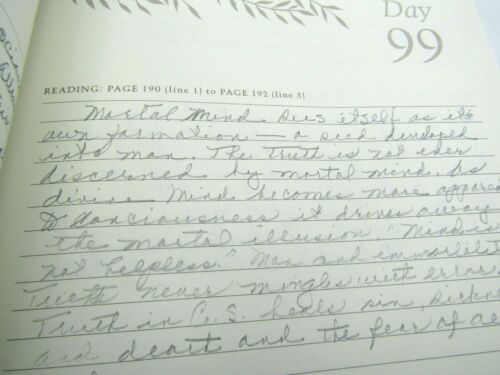 Day
99
READING: PAGE 190 (line 1) to PAGE 192 (line 3)
Mortal Mind sees itself as its
own formation — a seed developed
into man. The Truth is not ever
discerned by mortal mind. As
divine Mind becomes more appare
to consciousness it drives away
the mortal illusion. "Mind is
not helpless." Man and immortal
Truth never mingles with error
Truth in C.S. heals sin, sickne
and death and the fear of